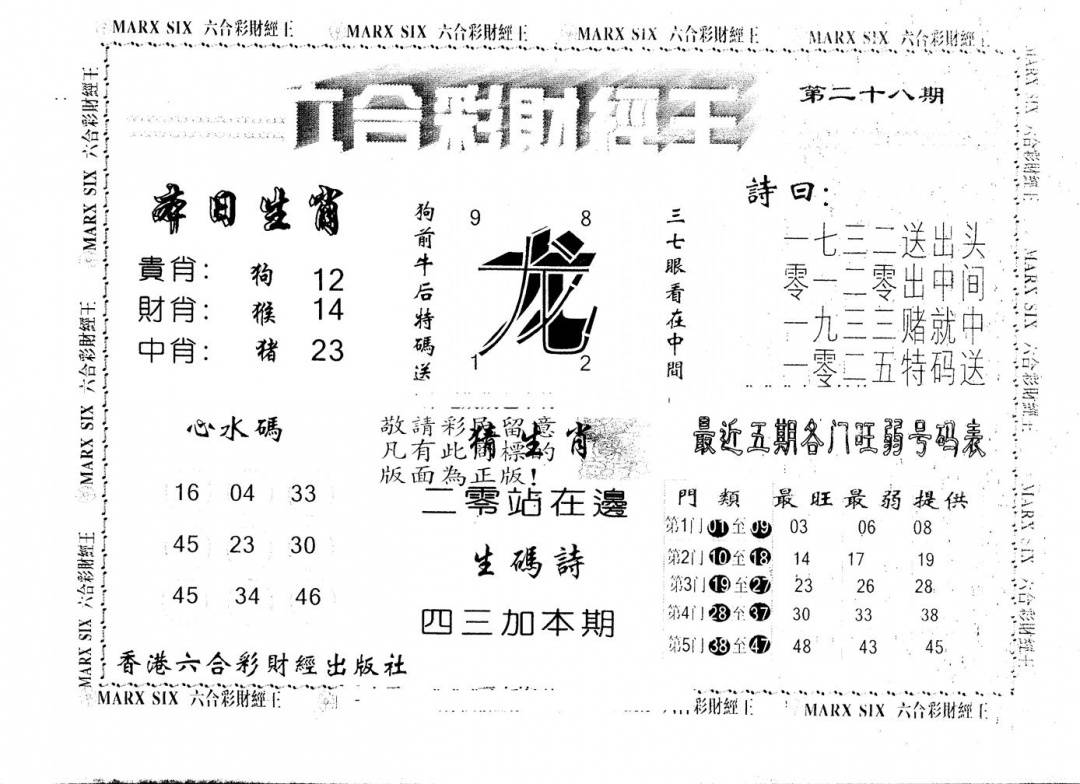 MARX SIX 六合彩財經王 MARX SIX 六合彩財經王 MARX SIX 六合彩財經王 MARX SIX 六合彩財經王
六合彩財經王
第二十八期
本日生肖
貴肖: 狗 12
財肖: 猴 14
中肖: 猪 23
狗前牛后特碼送
9 8
龙
1 2
三七眼看在中間
詩曰:
一七三二送出头
零一二零出中间
一九三三赌就中
一零二五特码送
心水碼
16 04 33
45 23 30
45 34 46
敬請彩民留意
凡有此商標的
版面為正版!
猜生肖
二零站在邊
生碼詩
四三加本期
最近五期各门旺弱号码表
門類 最旺最弱提供
第1门 01至09 03 06 08
第2门 10至18 14 17 19
第3门 19至27 23 26 28
第4门 28至37 30 33 38
第5门 38至47 48 43 45
香港六合彩財經出版社
MARX SIX 六合彩財經王
MARX SIX 六合彩財經王
MARX SIX 六合彩財經王
MARX SIX 六合彩財經王
MARX SIX 六合彩財經王 彩財經王 MARX SIX 六合彩財經王